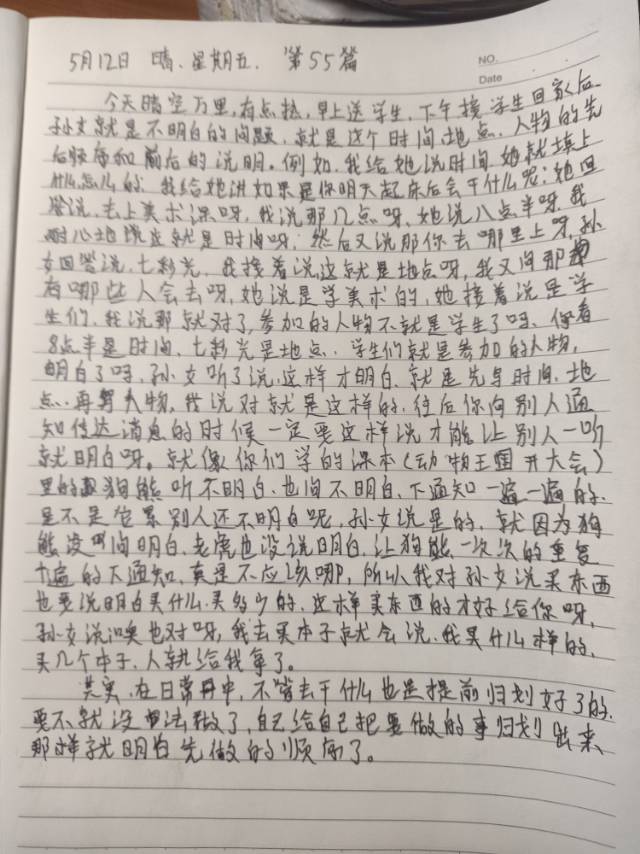 5月12日 晴、星期五. 第55篇
NO.
Date
今天晴空万里,有点热,早上送学生,下午接学生回家后,
孙女就是不明白的问题,就是这个时间地点,人物的先
后顺序和前后的说明。例如,我给她说时间,她就填上
什么怎么的,我给她讲如果是你明天起床后会干什么呢;她回
答说,去上美术课呀,我说那几点呀,她说八点半呀,我
耐心地说这就是时间呀,然后又说那你去哪里上呀,孙
女回答说,七秒光,我接着说,这就是地点呀,我又问那
有哪些人会去呀,她说是学美术的,她接着说是学
生们,我说那就对了,参加的人物不就是学生了吗,你看
8点半是时间,七秒光是地点,学生们就是参加的人物,
明白了吗,孙女听了说,这样才明白,就是先写时间,地
点,再写人物,我说对就是这样的,往后你向别人通
知传达消息的时候一定要这样说才能让别人一听
就明白呀。就像你们学的课本(动物王国开大会)
里的狗熊听不明白,也问不明白,下通知一遍一遍的,
是不是他累别人还不明白呢,孙女说是的,就因为狗
熊没问明白,老虎也没说明白,让狗熊一次次的重复
遍的下通知,真是不应该哪,所以我对孙女说买东西
也要说明白买什么,买多少的,这样买东西的才好给你呀,
孙女说噢也对呀,我去买本子就会说,我买什么样的,
买几个本子,人就给我拿了。
其实,在日常中,不管去干什么也是提前归划好了的,
要不就没法做了,自己给自己把要做的事归划出来,
那样就明白先做的顺序了。